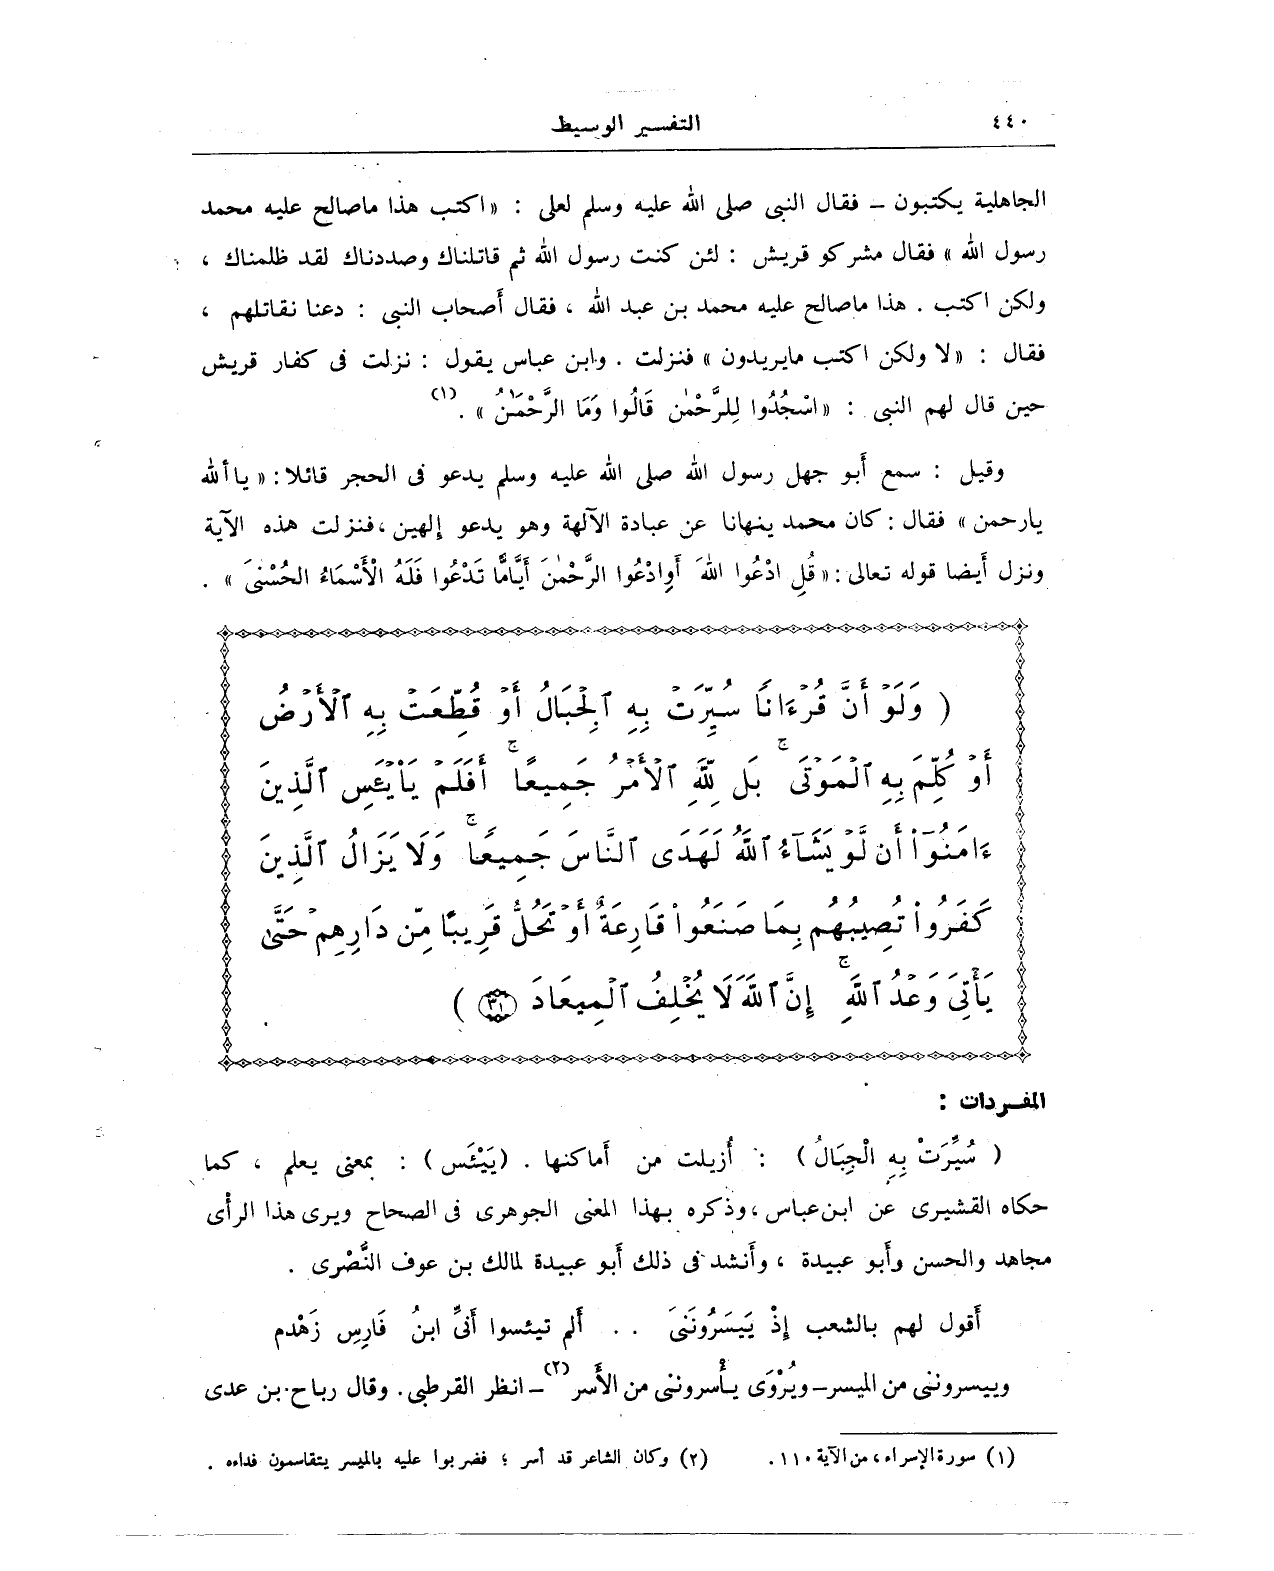 ٤٤٠
التفسير الوسيط
الجاهلية يكتبون – فقال النبى صلى الله عليه وسلم لعلى : «اكتب هذا ماصالح عليه محمد
رسول الله » فقال مشركو قريش : لئن كنت رسول الله ثم قاتلناك وصددناك لقد ظلمناك ،
ولكن اكتب . هذا ماصالح عليه محمد بن عبد الله ، فقال أصحاب النبى : دعنا نقاتلهم ،
فقال : «لا ولكن اكتب مايريدون » فنزلت . وابن عباس يقول : نزلت فى كفار قريش
حين قال لهم النبى : «اسْجُدُوا لِلرَّحْمٰنِ قَالُوا وَمَا الرَّحْمَٰنُ » . (١)
وقيل : سمع أبو جهل رسول الله صلى الله عليه وسلم يدعو فى الحجر قائلا : « يا ألله
يارحمن » فقال : كان محمد ينهانا عن عبادة الآلهة وهو يدعو إلهين ، فنزلت هذه الآية
ونزل أيضا قوله تعالى : « قُلِ ادْعُوا اللهَ أَوِادْعُوا الرَّحْمٰنَ أَيًّامَّا تَدْعُوا فَلَهُ الْأَسْمَاءُ الحُسْنَىٰ » .
( وَلَوْ أَنَّ قُرْءَانًا سُيِّرَتْ بِهِ ٱلْجِبَالُ أَوْ قُطِّعَتْ بِهِ ٱلْأَرْضُ
أَوْ كُلِّمَ بِهِ ٱلْمَوْتَىٰ ۚ بَل لِّلَّهِ ٱلْأَمْرُ جَمِيعًا ۚ أَفَلَمْ يَاْيْـَٔسِ ٱلَّذِينَ
ءَامَنُوٓا۟ أَن لَّوْ يَشَآءُ ٱللَّهُ لَهَدَى ٱلنَّاسَ جَمِيعًا ۚ وَلَا يَزَالُ ٱلَّذِينَ
كَفَرُوا۟ تُصِيبُهُم بِمَا صَنَعُوا۟ قَارِعَةٌ أَوْ تَحُلُّ قَرِيبًا مِّن دَارِهِمْ حَتَّىٰ
يَأْتِىَ وَعْدُ ٱللَّهِ ۚ إِنَّ ٱللَّهَ لَا يُخْلِفُ ٱلْمِيعَادَ ٣١ )
المفـردات :
( سُيِّرَتْ بِهِ الْجِبَالُ ) : أُزيلت من أماكنها . (يَيْئَس ) : بمعنى يعلم ، كما
حكاه القشيرى عن ابن عباس ، وذكره بهذا المعنى الجوهرى فى الصحاح ويرى هذا الرأى
مجاهد والحسن وأبو عبيدة ، وأنشد فى ذلك أبو عبيدة لمالك بن عوف النَّصْرى .
أقول لهم بالشعب إِذْ يَيسَرُونَنىَ . . ألم تيئسوا أَنىِّ ابنُ فَارِسِ زَهْدم
وييسروننى من الميسر– ويُرْوَى يأسروننى من الأسر (٢) – انظر القرطبى. وقال رباح بن عدى
(١) سورة الإسراء ، من الآية ١١٠ .
(٢) وكان الشاعر قد أسر ؛ فضربوا عليه بالميسر يتقاسمون فداءه .